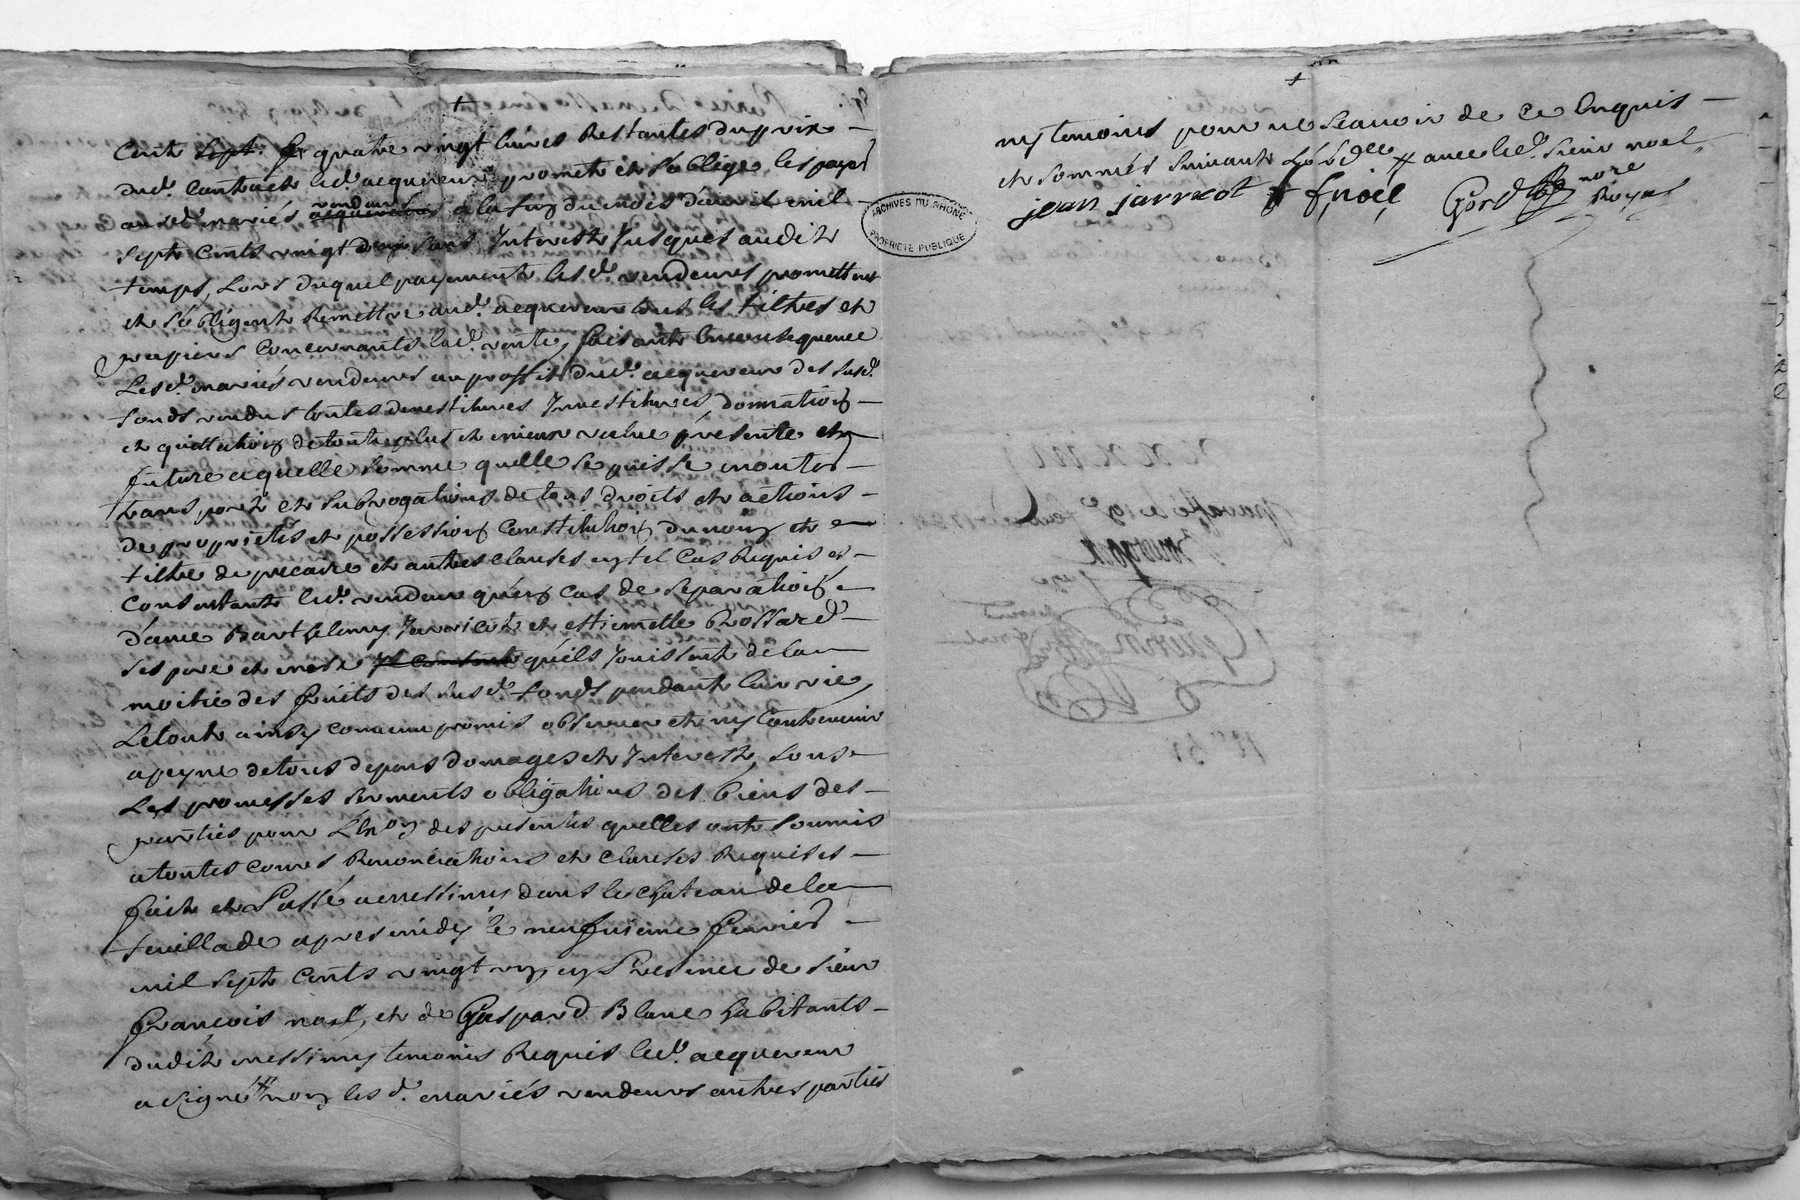 Cents sept. et quatre vingt livres Restantes du prix
dud. Contract led. acquereur promet et s'oblige les payer
ausd. mariés vendeurs a la fin du mois d'avril mil
sept Cents vingt deux sans Interests Jusques audit
temps, Lors duquel payement lesd. vendeurs promettent
et s'obligent Remettre aud. acquereur tous les tiltres et
papiers Concernants lad. vente, faisants Enconsequence
Lesd. mariés vendeurs au proffit dud. acquereur des susd.
fonds vendus toutes devestitures Investitures, donnation
et quittation de toute plus et mieux value presente et
future a quelle somme quelle se puisse monter
transport et subrogations de tous droits et actions
de proprietés et possession Constitution du nom et
tiltre de precaire et autres clauses en tel Cas Requis et
Consentants led. vendeur qu'en cas de separation
d'avec Barthelemy Jarricot et Estiennette Brossard
ses pere et mere qu'ils Jouissent de la
moitié des fruits des susd. fonds pendant leur vie,
Le tout ainsy comme promis observer et ny Contrevenir
a peyne de tous depens domages et Interests, sous
Les promesses serments obligations des biens des
parties pour L'Exon des presentes quelles onts soumis
a toutes cours Renonciations et clauses Requises
fait et Passé a messimy dans le chateau de la
feuillade apres midy le neufvieme fevrier
mil sept Cents vingt un en Presence de sieur
françois noel, et de Gaspard Blanc habitants
dudit messimy temoins Requis led. acquereur
a signé # non lesd. mariés vendeurs autres parties
ARCHIVES DU RHÔNE
PROPRIÉTÉ PUBLIQUE
ny temoins pour ne scavoir de ce Enquis
et sommés suivants # avec led. sieur noel
jean jarricot f noël
nore
Royal